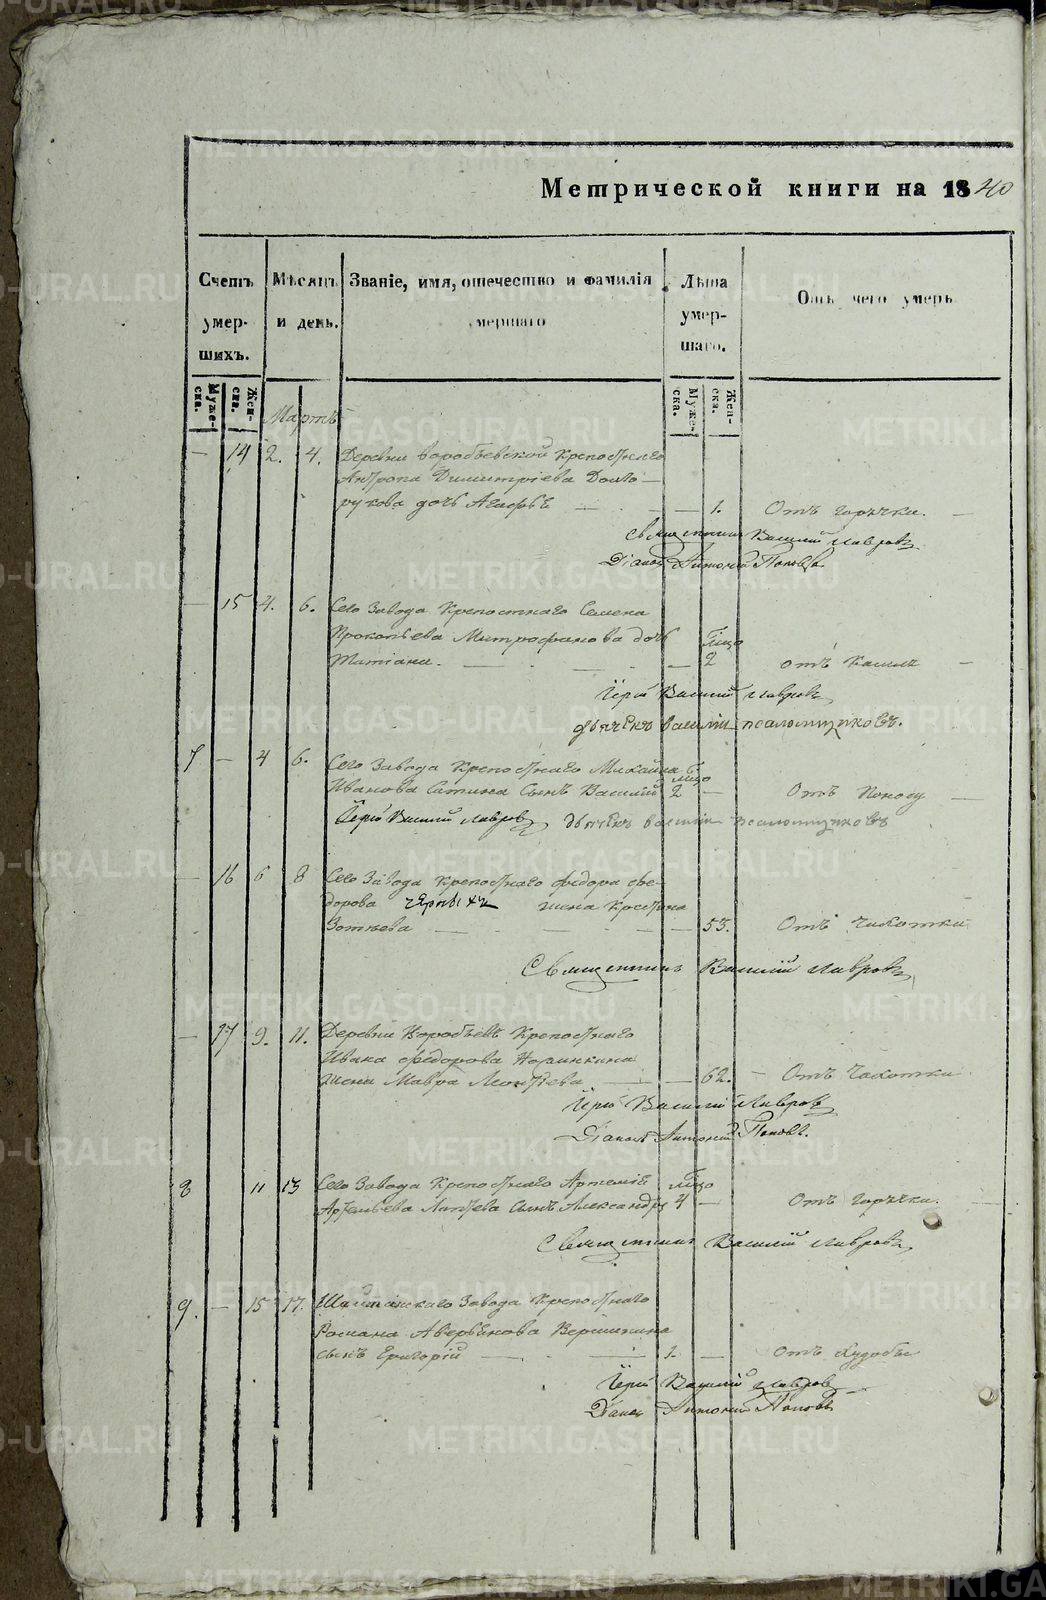 Метрической книги на 1840
Счетъ умерших.
Мѣсяцъ и день.
Званіе, имя, отечество и фамилія умершаго
Лѣта умершаго.
Отъ чего умеръ
Мужеска.
Женска.
Мужеска.
Женска.
Мартъ
— 14 2. 4. Деревни Воробьевской Крепостнаго
Антропа Димитріева Долго-
рукова дочь Агафья — 1. Отъ горячки. —
Священникъ Василій Лавровъ
Діаконъ Антоній Поповъ
— 15 4. 6. Сего Завода Крепостнаго Семена
Прокопьева Митрофанова дочь
Татіана. — 2 отъ Кашля —
Іерей Василій Лавровъ
дьячекъ василіи псаломщиковъ.
7 — 4 6. Сего Завода Крепостнаго Михайла
Иванова сынъ Василій 2 — Отъ Поносу —
Іерей Василій Лавровъ дьячекъ василіи псаломщиковъ
— 16 6 8 Сего Завода Крепостнаго Федора Фе-
дорова черныхъ жена
Зотѣева — 53. Отъ Чахотки
Священникъ Василій Лавровъ
— 17 9. 11. Деревни Воробьевъ Крепостнаго
Ивана Федорова
жена Мавра Леонтьева — 62. — Отъ Чахотки
Іерей Василій Лавровъ
Діаконъ Антоній Поповъ.
8 11 13 Сего Завода Крепостнаго Артеміе
Артемьева Лаптева сынъ Александръ 4 — Отъ горячки.
Священникъ Василій Лавровъ
9. — 15 17. Шайтанскаго Завода Крепостнаго
Романа Аверьянова Вершинина
сынъ Григорій — 1. — Отъ Худобы
Іерей Василій Лавровъ
Антоній Поповъ
METRIKI.GASO-URAL.RU